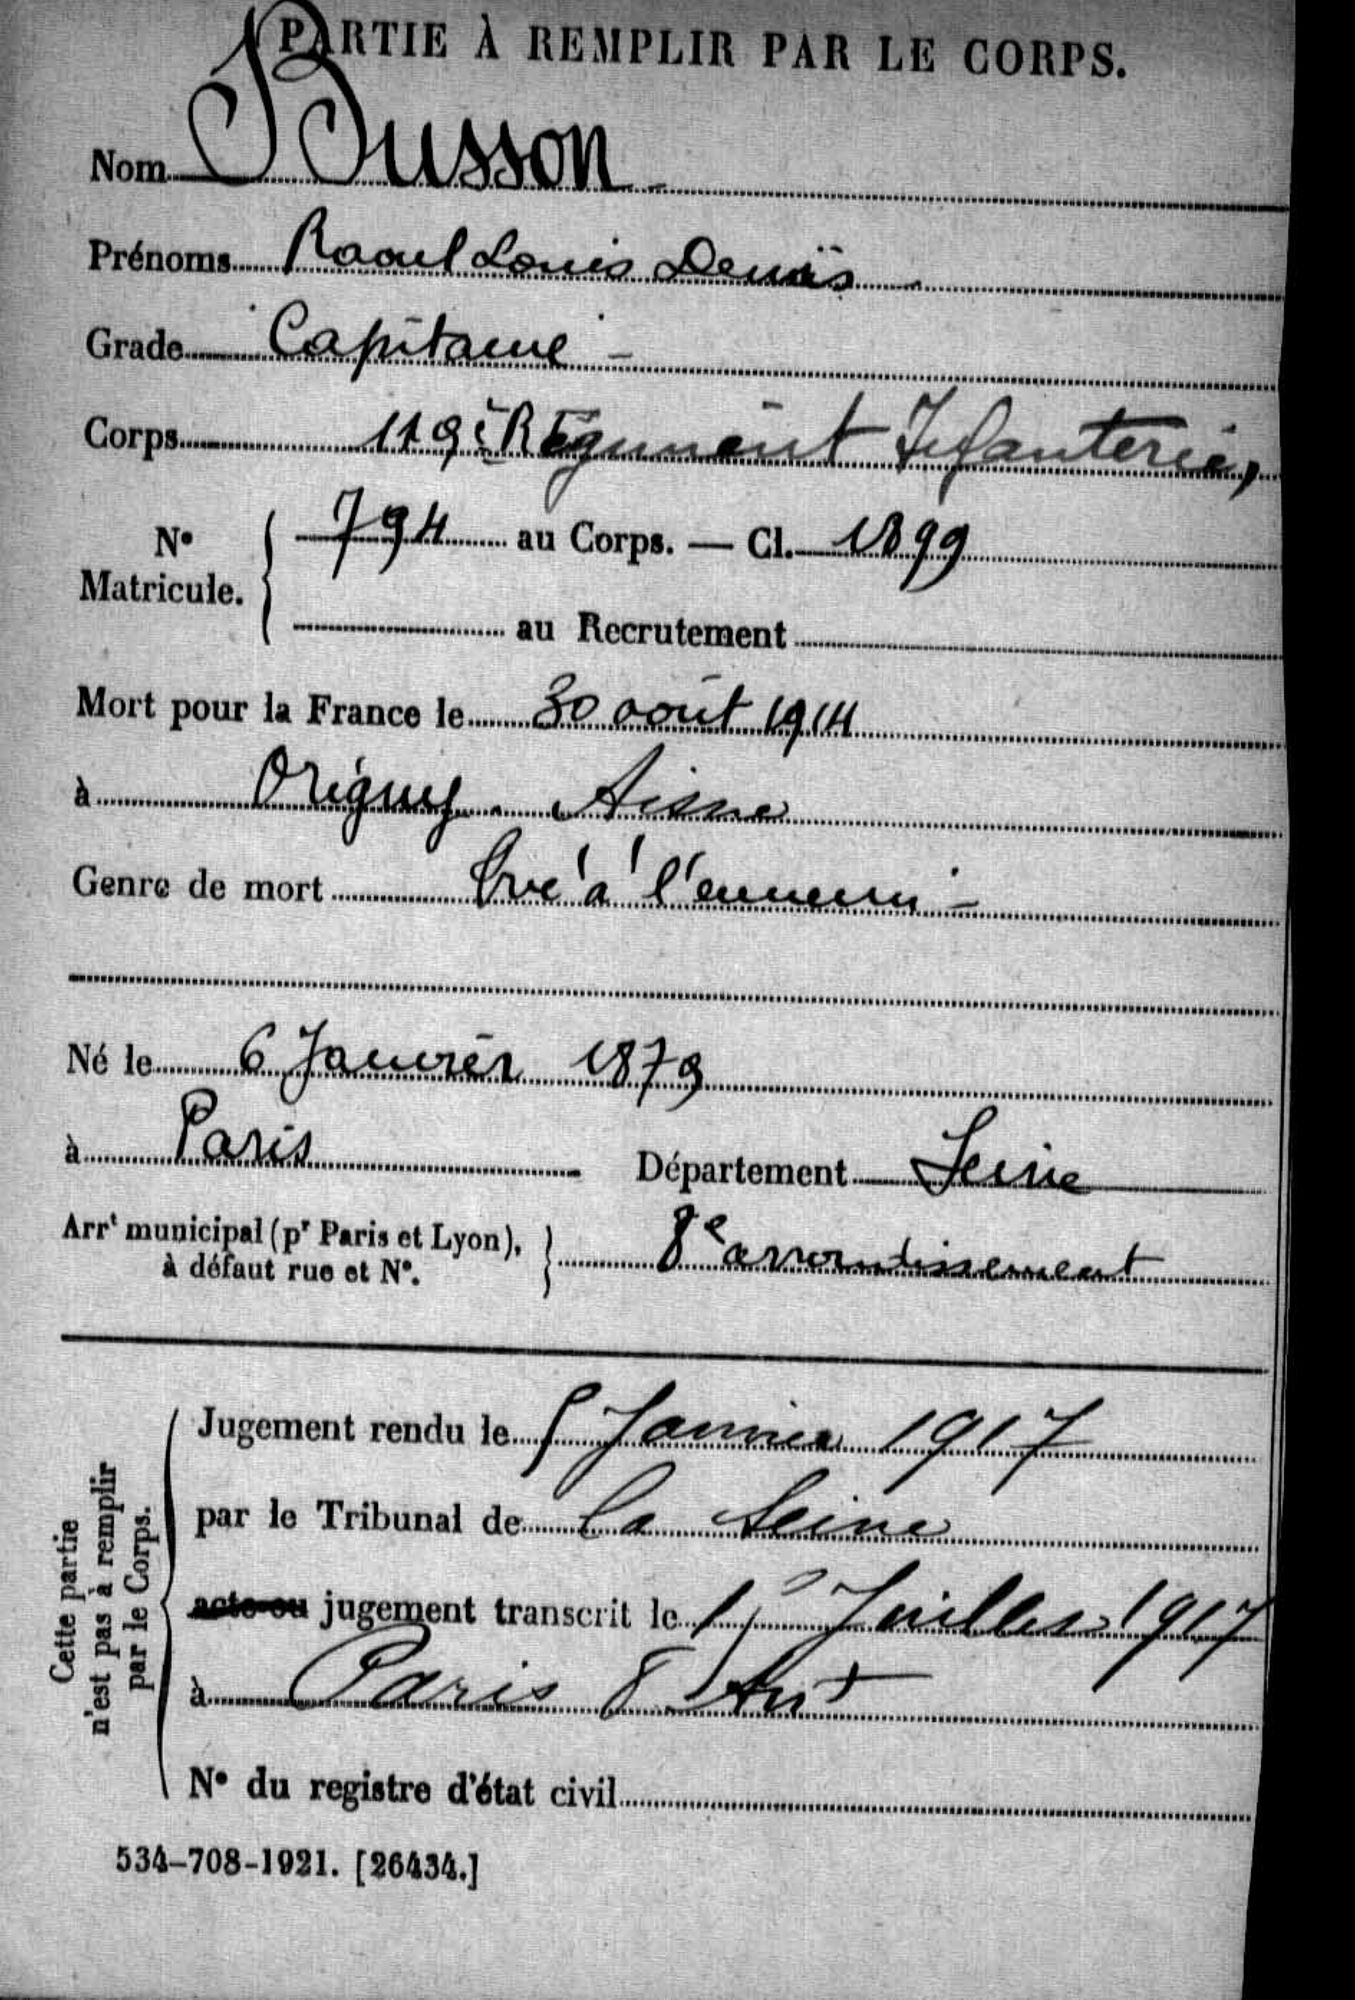 PARTIE À REMPLIR PAR LE CORPS.
Nom Busson
Prénoms Raoul Louis Denis
Grade Capitaine
Corps 119e Régiment Infanterie,
N° Matricule. 794 au Corps. — Cl. 1899
au Recrutement
Mort pour la France le 30 août 1914
à Origny. Aisne
Genre de mort Tué à l'ennemi
Né le 6 Janvier 1879
à Paris Département Seine
Arrt municipal (pr Paris et Lyon), à défaut rue et N°. 8e arrondissement
Cette partie n'est pas à remplir par le Corps.
Jugement rendu le 5 Janvier 1917
par le Tribunal de la Seine
acte ou jugement transcrit le Juillet 1917
à Paris 8 Arrt
N° du registre d'état civil
534-708-1921. [26434.]